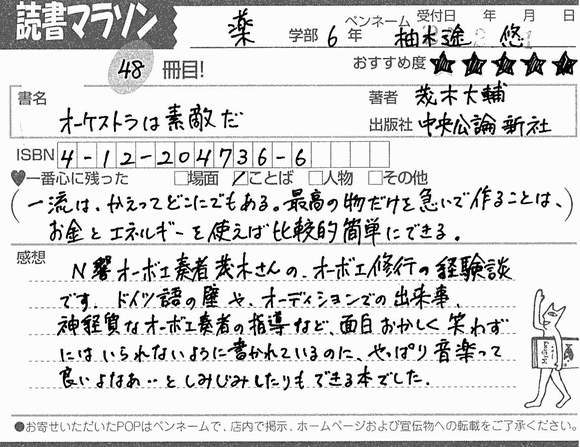 読書マラソン
薬 学部 6 年 ペンネーム 柚木遊 悠 受付日 年 月 日
48 冊目! おすすめ度 ★★★★★
書名 オーケストラは素敵だ
著者 茂木大輔
出版社 中央公論新社
ISBN 4-12-204736-6
♥一番心に残った □場面 ☑ことば □人物 □その他
(一流は、かえってどこにでもある。最高の物だけを急いで作ることは、
お金とエネルギーを使えば比較的簡単にできる。)
感想
N響オーボエ奏者茂木さんの、オーボエ修行の経験談
です。ドイツ語の壁や、オーディションでの出来事、
神経質なオーボエ奏者の指導など、面白おかしく笑わず
にはいられないように書かれているのに、やっぱり音楽って
良いよなあ‥としみじみしたりもできる本でした。
●お寄せいただいたPOPはペンネームで、店内で掲示、ホームページおよび宣伝物への転載をご了承ください。